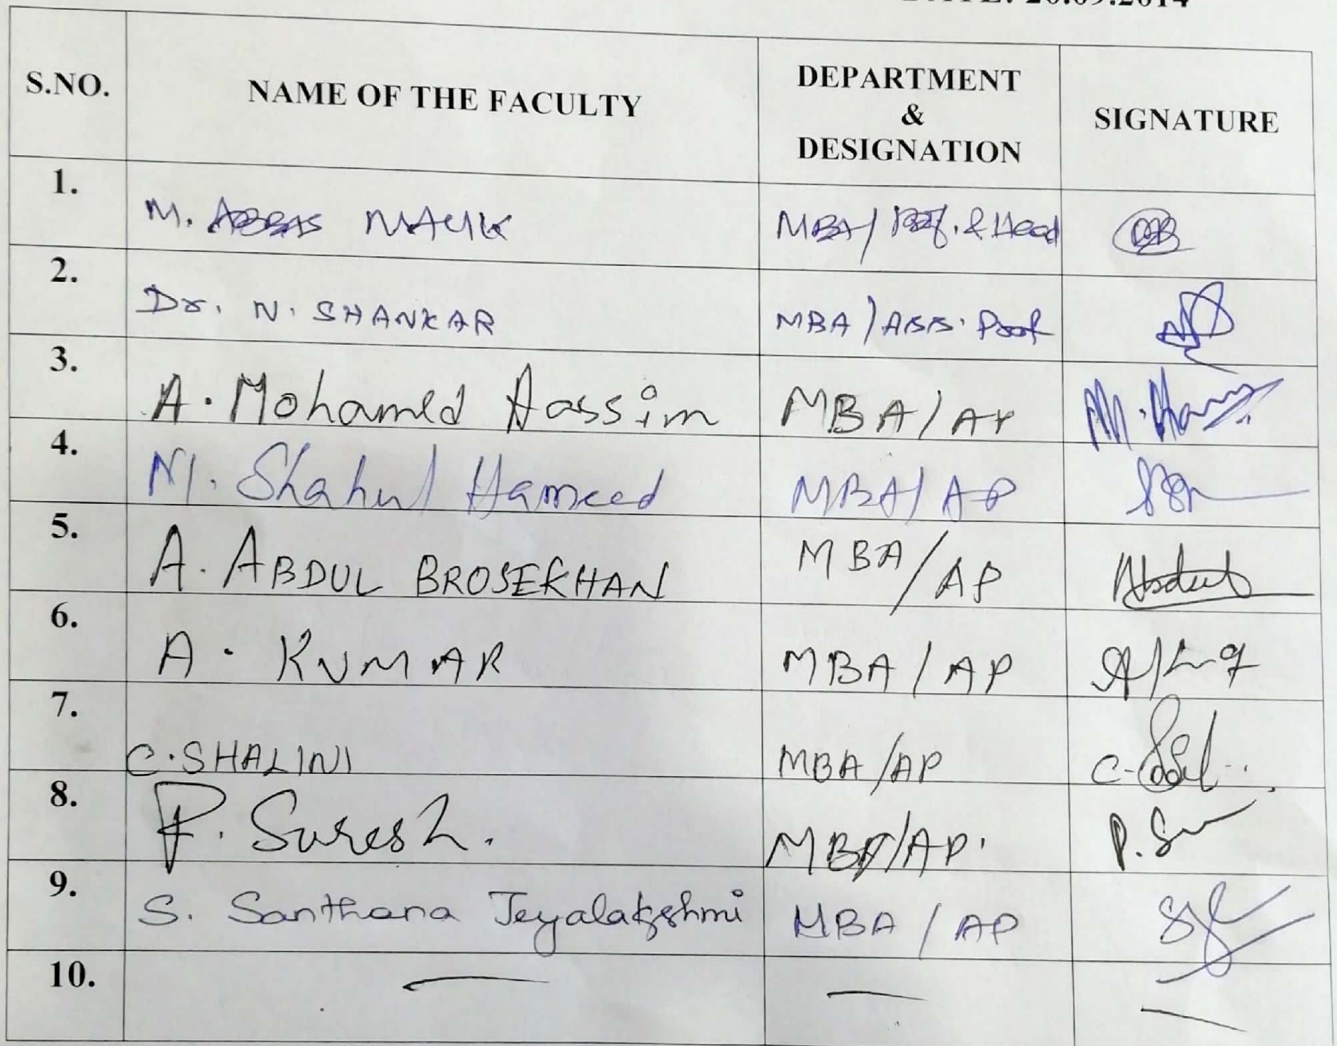 DATE: 20.09.2014
S.NO. NAME OF THE FACULTY DEPARTMENT & DESIGNATION SIGNATURE
1. M. ABBAS MALIK MBA/ Prof. & Head
2. Dr. N. SHANKAR MBA / Ass. Prof
3. A. Mohamed Hassim MBA / AP
4. M. Shahul Hameed MBA / AP
5. A. ABDUL BROSEKHAN MBA / AP Abdul
6. A. KUMAR MBA / AP
7. C. SHALINI MBA / AP
8. P. Suresh. MBA / AP.
9. S. Santhana Jeyalakshmi MBA / AP
10. — — —